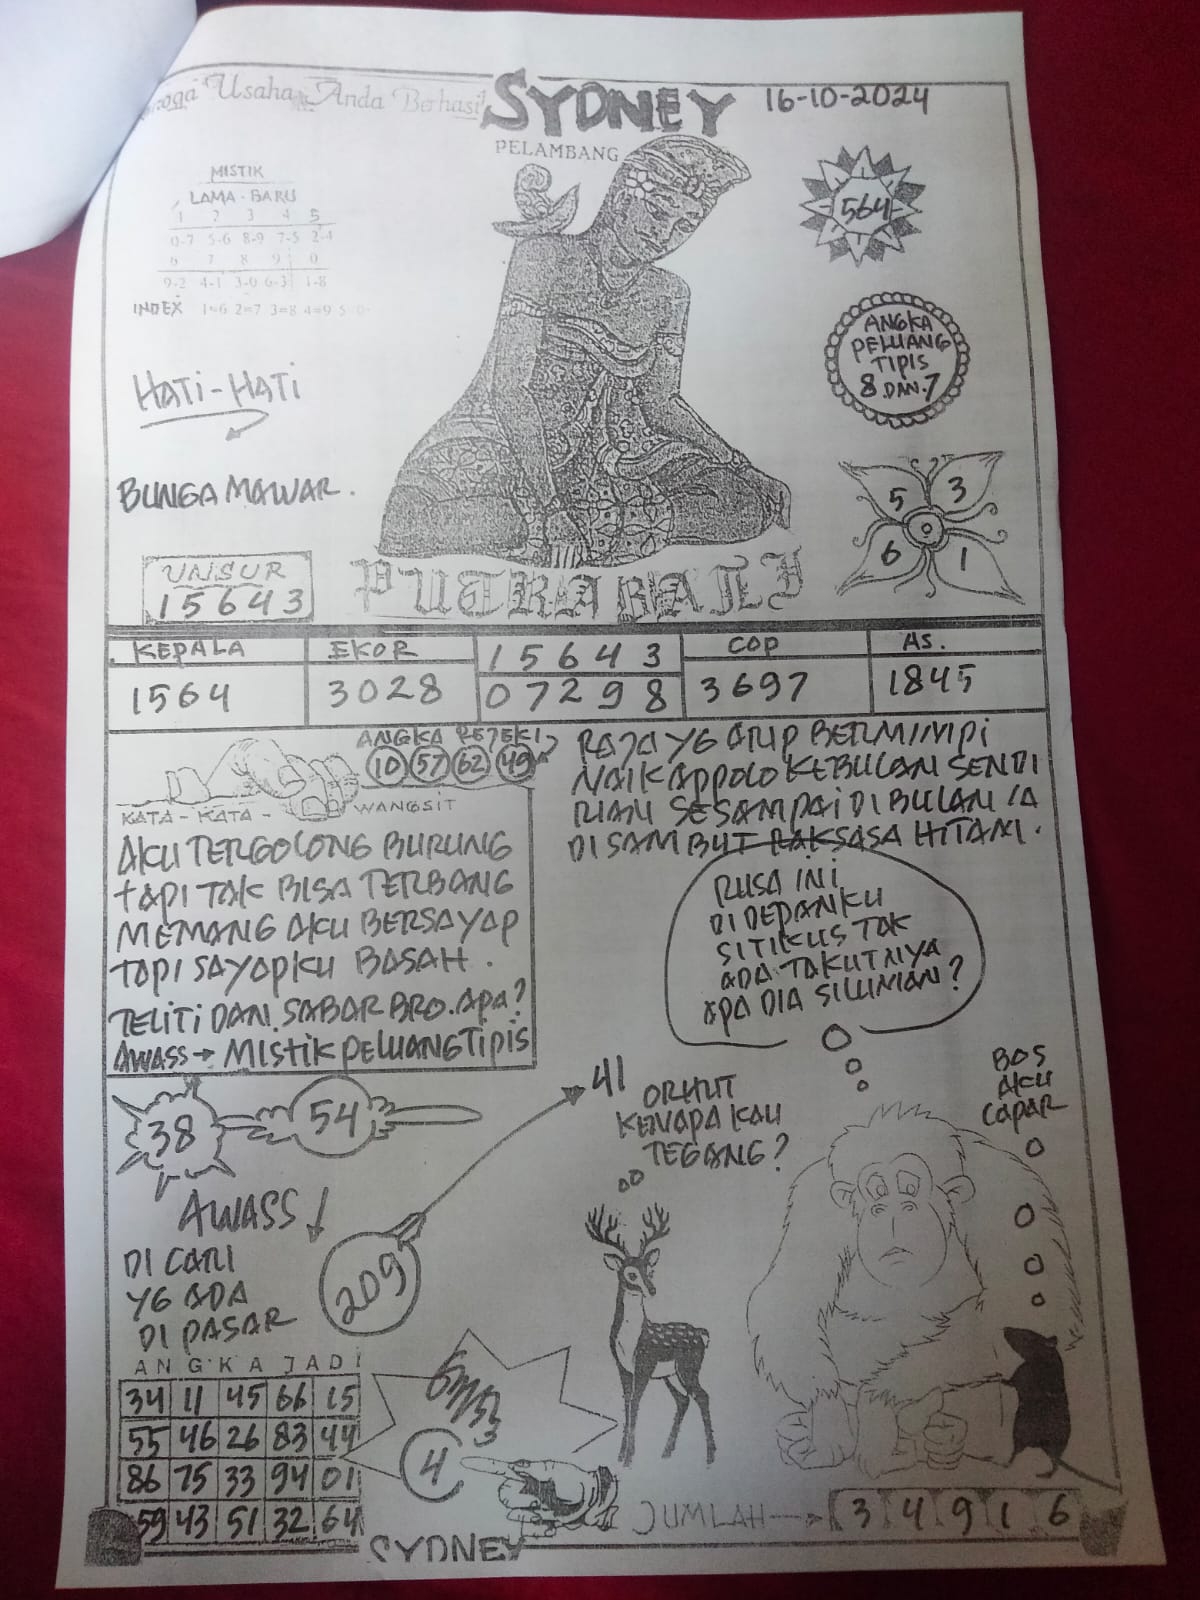 Usaha Anda Berhasil
SYDNEY 16-10-2024
PELAMBANG
MISTIK
LAMA - BARU
1 2 3 4 5
0-7 5-6 8-9 7-5 2-4
6 7 8 9 0
9-2 4-1 3-0 6-3 1-8
INDEX 1=6 2=7 3=8 4=9 5
564
ANGKA
PELUANG
TIPIS
8 DAN 7
HATI-HATI
BUNGA MAWAR.
5 3
6 1
UNSUR
15643
PUTRA BALI
KEPALA EKOR 15643 COP AS.
1564 3028 07298 3697 1845
ANGKA REJEKI
10 57 62 49
KATA - KATA - WANGSIT
AKU TERGOLONG BURUNG
TAPI TAK BISA TERBANG
MEMANG AKU BERSAYAP
TAPI SAYAPKU BASAH.
TELITI DAN SABAR BRO. APA?
AWASS → MISTIK PELUANG TIPIS
RAJA YG BERMIMPI
NAIK APPOLO KEBULAN SENDI
RIAN SESAMPAI DI BULAN IA
DI SAMBUT RAKSASA HITAM.
RUSA INI
DI DEPANKU
SITIKUS TAK
ADA TAKUTNYA
APA DIA SILUMAN?
BOS
AKU
CAPAR
41
ORHUT
KENAPA KAU
TEGANG?
38 54
AWASS
DI CARI
YG ADA
DI PASAR
209
ANGKA JADI
34 11 45 66 15
55 46 26 83 44
86 75 33 94 01
59 43 51 32 64
4
JUMLAH → 3 4 9 1 6
SYDNEY